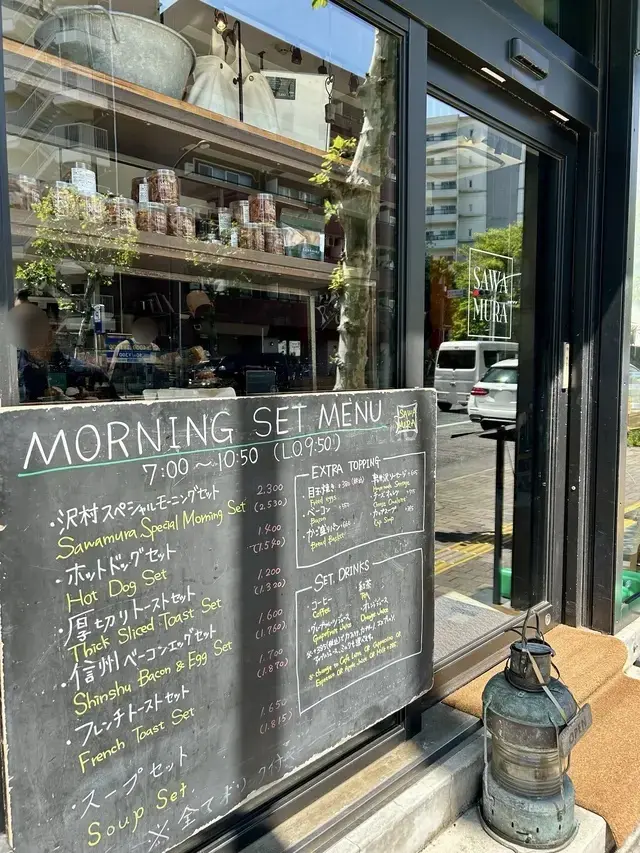 SAWA
MURA
MORNING SET MENU
SAWA
MURA
7:00 ~ 10:50 (L.O 9:50)
・沢村スペシャルモーニングセット 2.300
Sawamura Special Morning Set (2.530)
・ホットドッグセット 1.400
Hot Dog Set (1.540)
・厚切りトーストセット 1.200
Thick Sliced Toast Set (1.320)
・信州ベーコンエッグセット 1.600
Shinshu Bacon & Egg Set (1.760)
・フレンチトーストセット 1.700
French Toast Set (1.870)
・スープセット 1.650
Soup Set (1.815)
※全て
EXTRA TOPPING
・目玉焼き
Fried eggs
・ベーコン
Bacon
Bread Basket
Homemade Sausage
・チーズオムレツ
Cheese Omelette
・カップスープ
Cup Soup
SET DRINKS
・コーヒー
Coffee
・紅茶
Tea
・グレープフルーツジュース
Grapefruit Juice
・オレンジジュース
Orange Juice
※ change to Cafe Latte OR Cappuccino OR
Espresso OR Apple Juice OR Milk